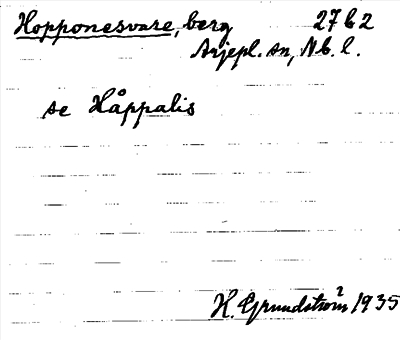 Hopponesvare, berg 2762
Arjepl. sn, Nb. l.
se Håppalis
H. Grundström 1935